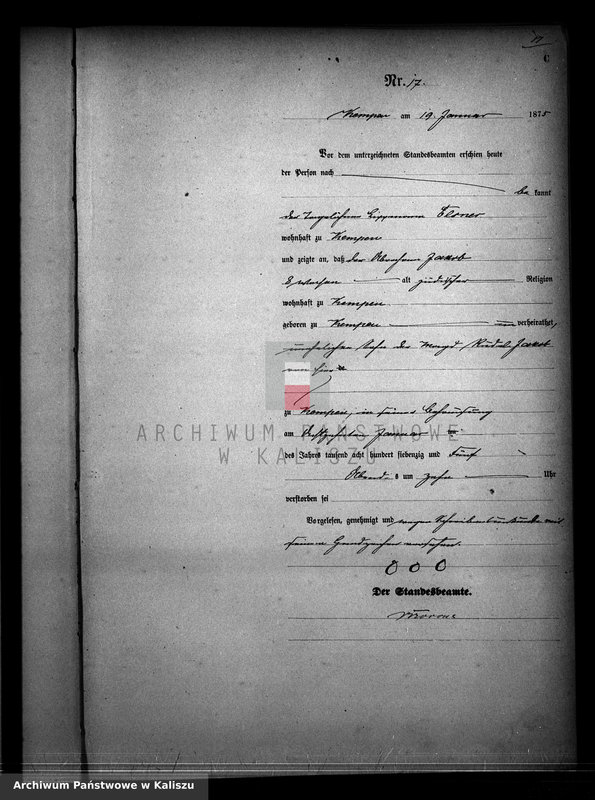 17
C
Nr. 17.
Kempen am 19. Januar 1875
Vor dem unterzeichneten Standesbeamten erschien heute
der Person nach
be kannt
der Tagelöhner Lippmann Elsner
wohnhaft zu Kempen
und zeigte an, daß der Abraham Jakob
8 Wochen alt jüdischer Religion
wohnhaft zu Kempen
geboren zu Kempen un verheirathet,
unehelicher Sohn der Magd Jakob
von hier
zu Kempen, in seiner Behausung
am Januar
des Jahres tausend acht hundert siebenzig und Fünf
Abends um zehn Uhr
verstorben sei
Vorgelesen, genehmigt und wegen mit
seinem Handzeichen versehen.
O O O
Der Standesbeamte.
ARCHIWUM PAŃSTWOWE
W KALISZU
Archiwum Państwowe w Kaliszu